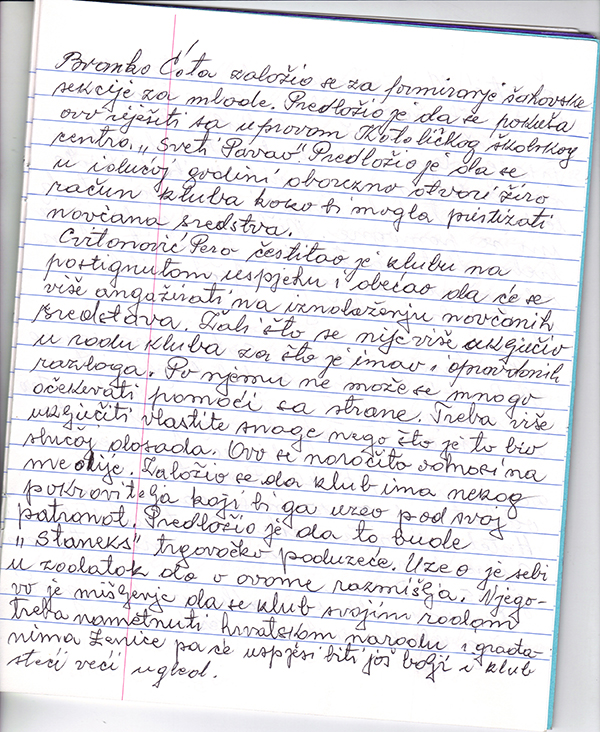 Branko Ćota založio se za formiranje šahovske
sekcije za mlade. Predložio je da se pokuša
ovo riješiti sa upravom Katoličkog školskog
centra „Sveti Pavao". Predložio je da se
u idućoj godini obavezno otvori žiro
račun kluba kako bi mogla pristizati
novčana sredstva.
Cvitanović Pero čestitao je klubu na
postignutom uspjehu i obećao da će se
više angažirati na iznalaženju novčanih
sredstava. Žali što se nije više uključio
u radu kluba za što je imao i opravdanih
razloga. Po njemu ne može se mnogo
očekivati pomoći sa strane. Treba više
uključiti vlastite snage nego što je to bio
slučaj dosada. Ovo se naročito odnosi na
medije. Založio se da klub ima nekog
pokrovitelja koji bi ga uzeo pod svoj
patronat. Predložio je da to bude
„Staneks" trgovačko poduzeće. Uzeo je sebi
u zadatak da o ovome razmišlja. Njego-
vo je mišljenje da se klub svojim radom
treba nametnuti hrvatskom narodu i građa-
nima Zenice pa će uspjesi biti još bolji i klub
steći veći ugled.